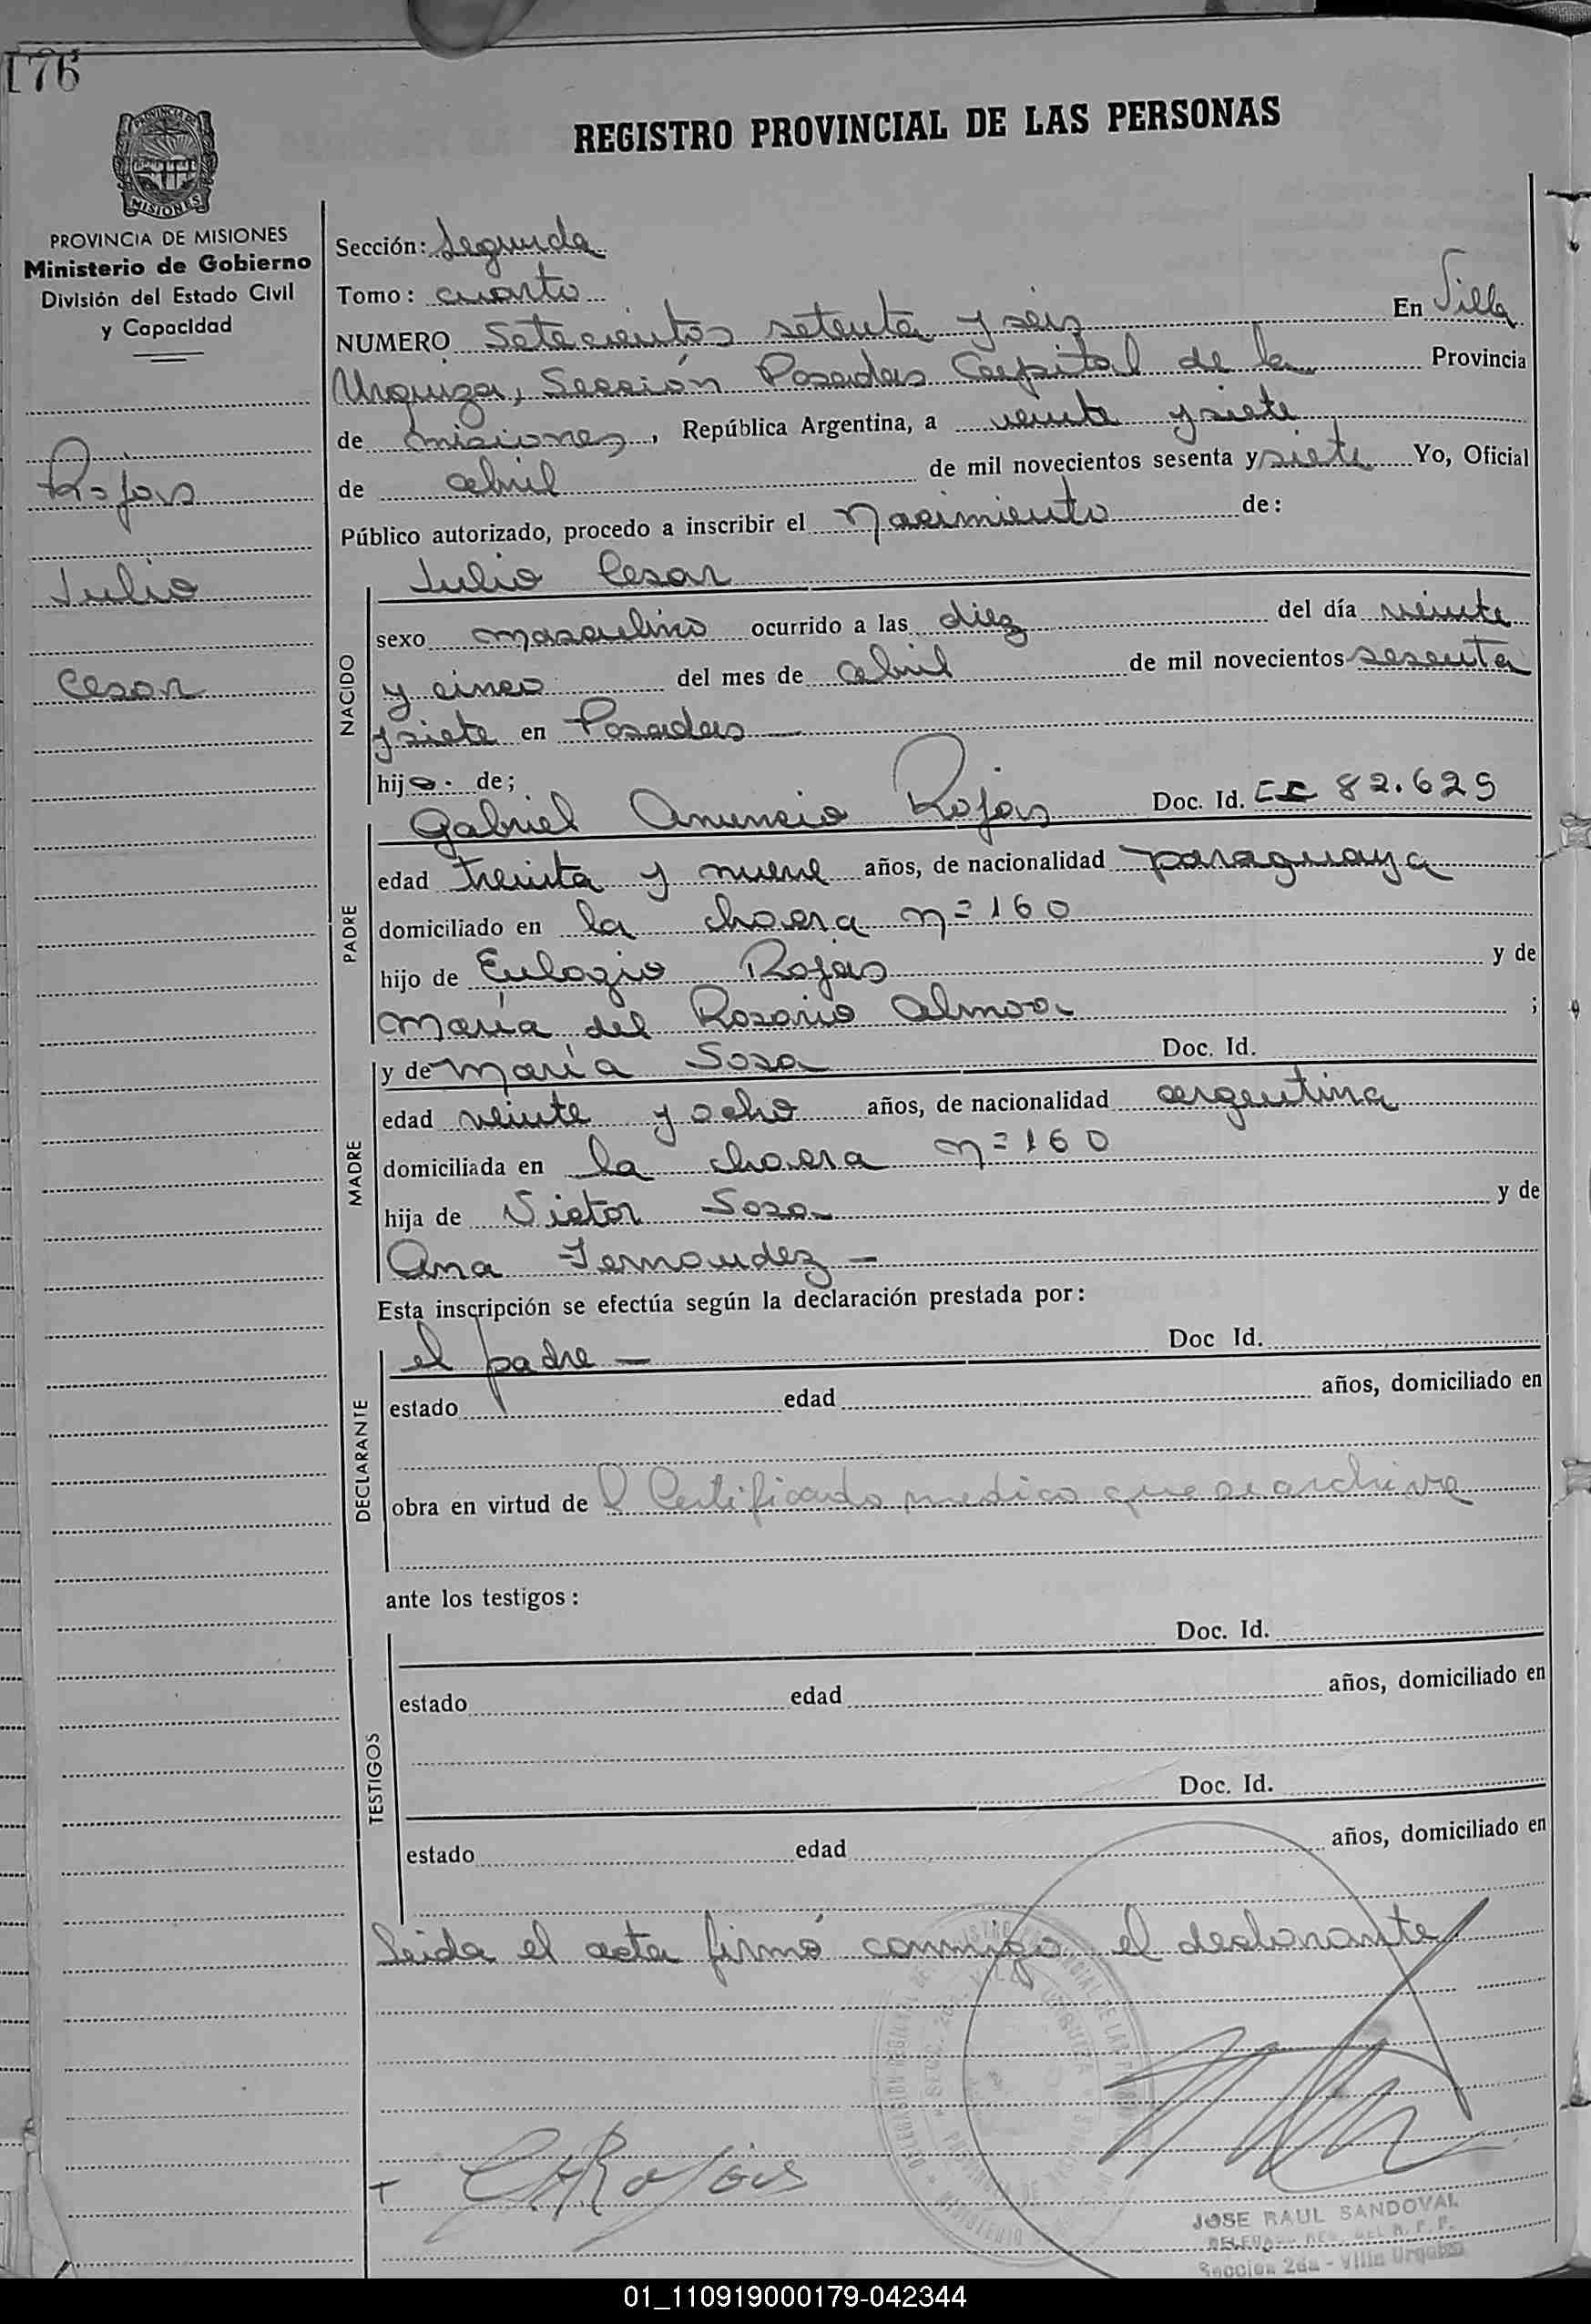 176
REGISTRO PROVINCIAL DE LAS PERSONAS
PROVINCIA DE MISIONES
MISIONES
PROVINCIA DE MISIONES
Ministerio de Gobierno
División del Estado Civil
y Capacidad
Rojas
Julio
Cesar
Sección: Segunda
Tomo: cuarto
NUMERO Setecientos setenta y seis En Villa
Urquiza, Sección Posadas Capital de la Provincia
de misiones, República Argentina, a veinte y siete
de abril de mil novecientos sesenta y siete Yo, Oficial
Público autorizado, procedo a inscribir el Nacimiento de:
NACIDO
Julio Cesar
sexo masculino ocurrido a las diez del día veinte
y cinco del mes de abril de mil novecientos sesenta
y siete en Posadas
hijo de;
PADRE
Gabriel Anuncio Rojas Doc. Id. CI 82.629
edad treinta y nueve años, de nacionalidad paraguaya
domiciliado en la chacra n=160
hijo de Eulogio Rojas y de
María del Rosario ;
MADRE
y de María Sosa Doc. Id.
edad veinte y ocho años, de nacionalidad argentina
domiciliada en la chacra n=160
hija de Victor Sosa y de
Ana Fernandez
Esta inscripción se efectúa según la declaración prestada por:
DECLARANTE
el padre Doc Id.
estado edad años, domiciliado en
obra en virtud de Certificado medico que se archiva
ante los testigos:
TESTIGOS
Doc. Id.
estado edad años, domiciliado en
Doc. Id.
estado edad años, domiciliado en
Leida el acta firmó conmigo el declarante
Rojas
JOSE RAUL SANDOVAL
Seccion 2da - Villa Urquiza
01_110919000179-042344